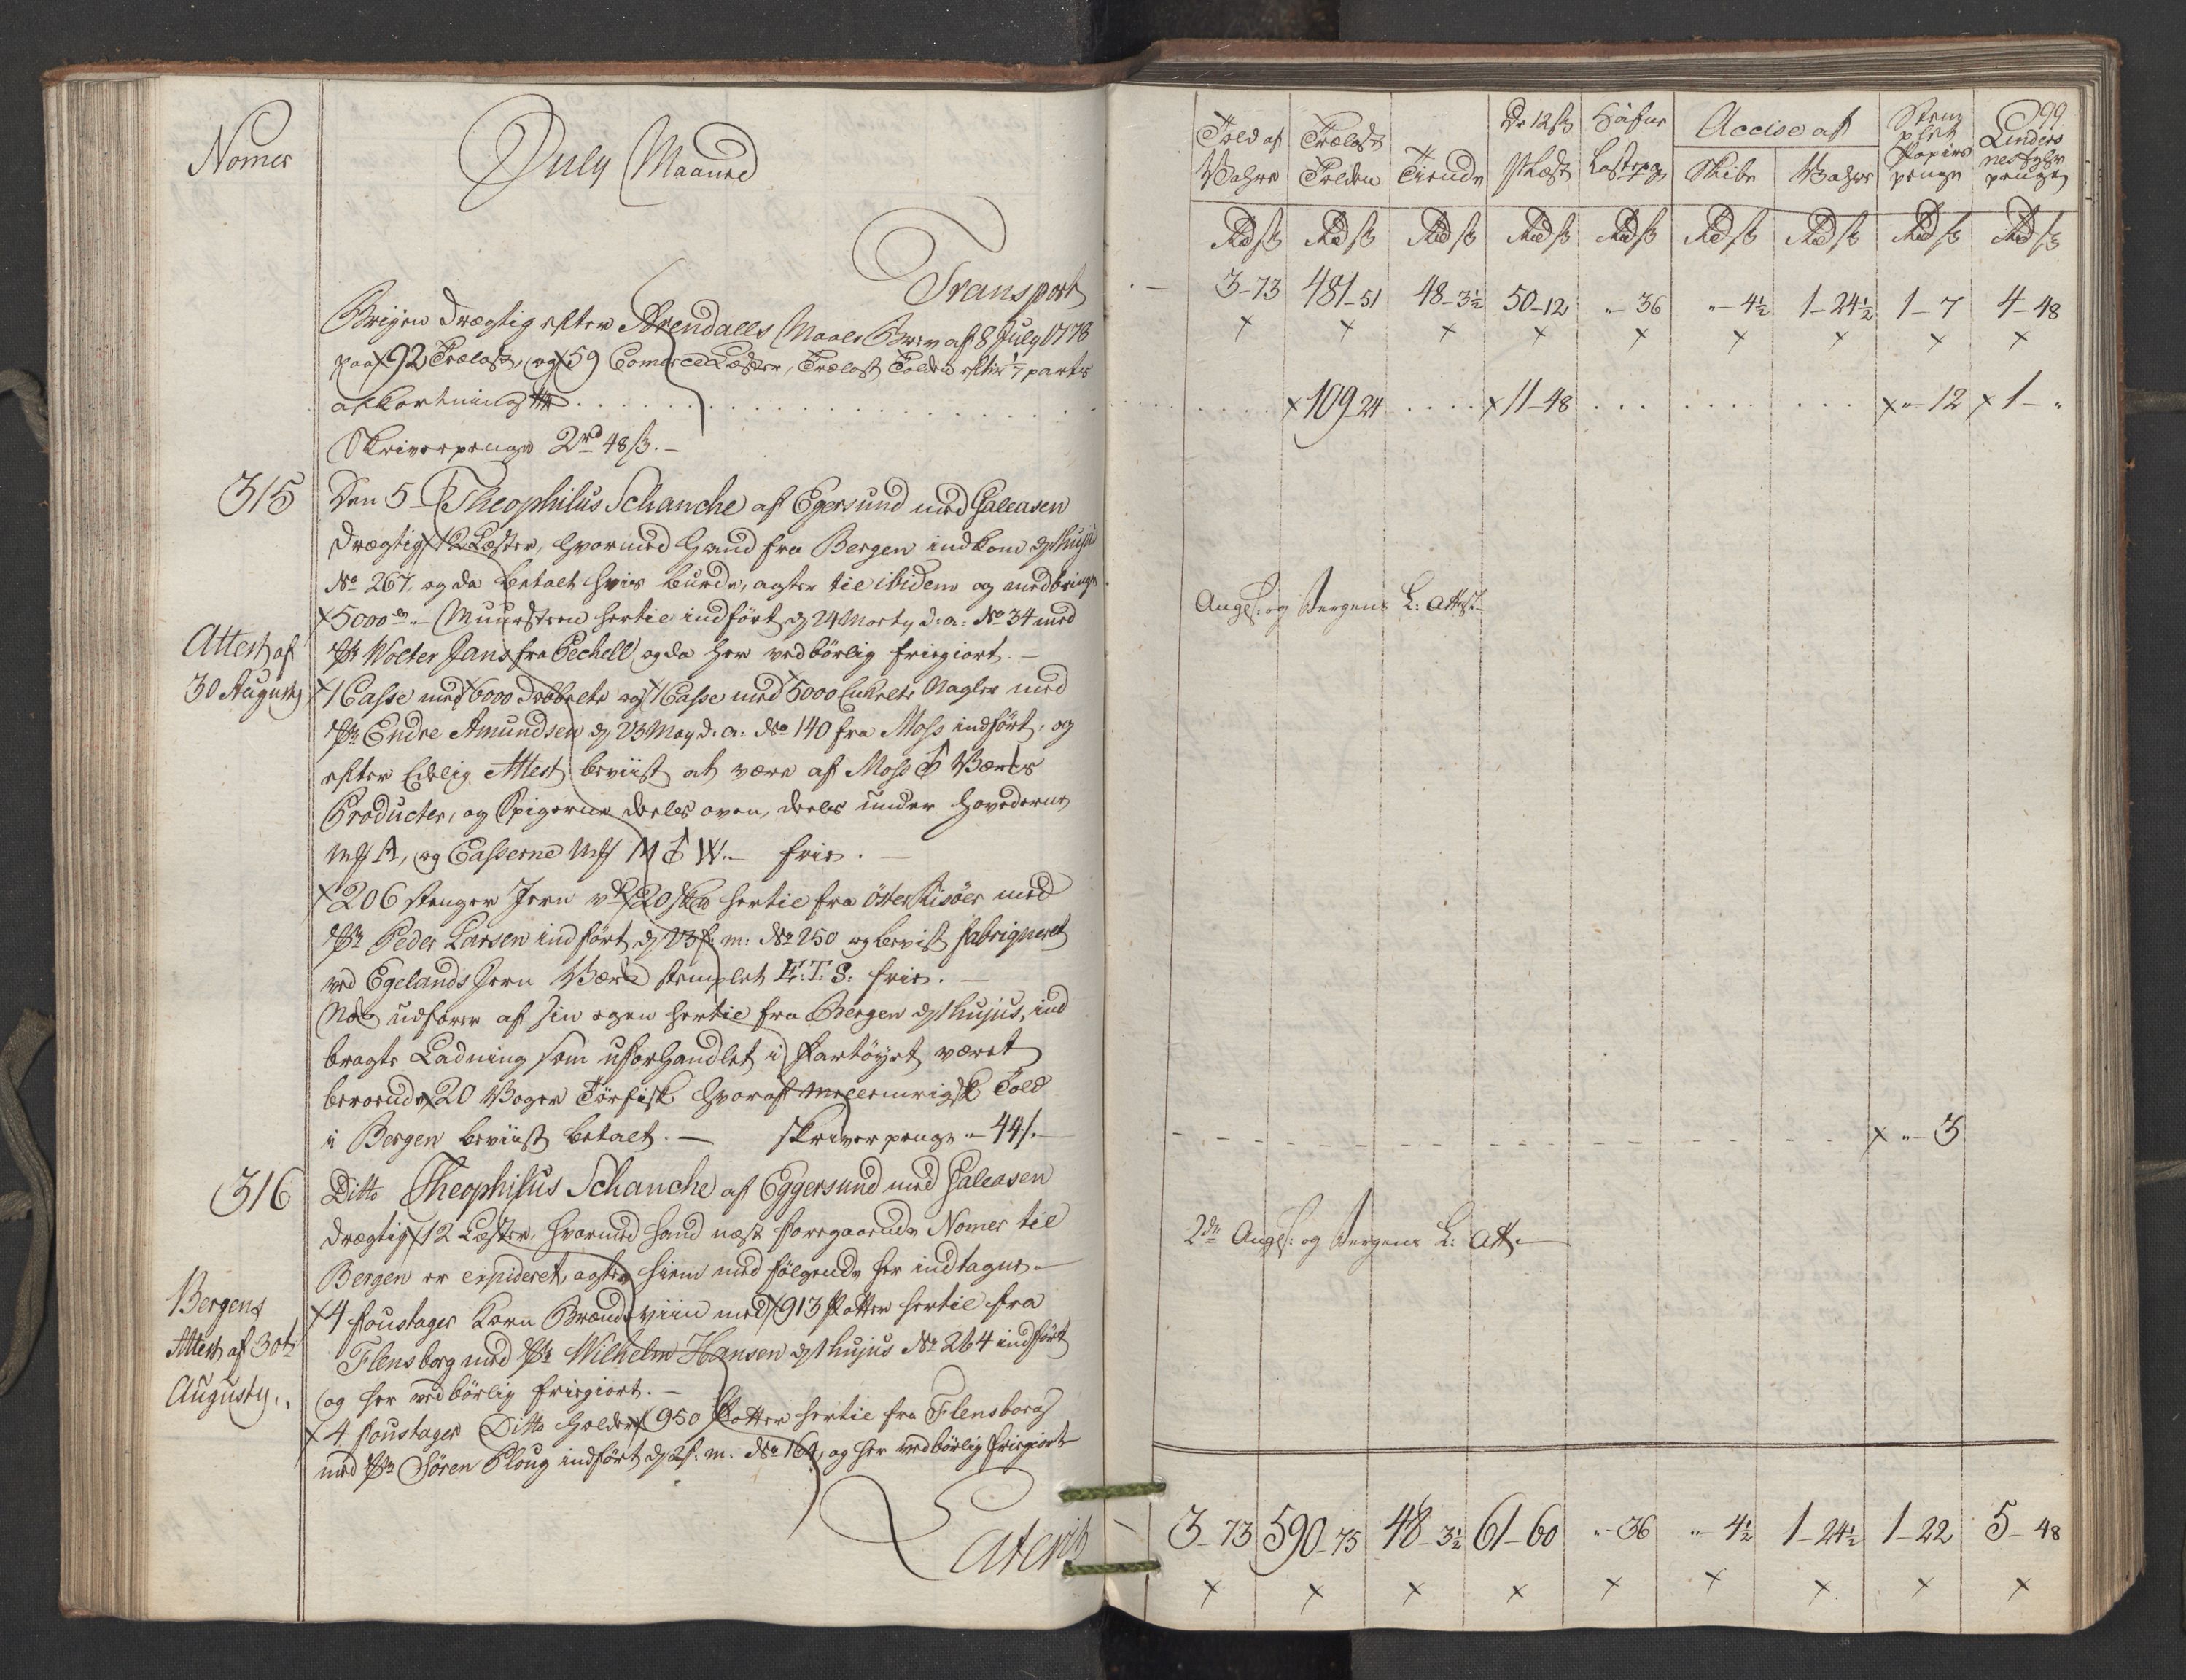 Nomer
July Maaned
Transport
Brigen drægtig efter Arendalls Maale Brev af 8 July 1778
paa 92 Trælast, og 59 Comerce Læster, Trælast Tolden efter 1/7 parts
afkortning
Skriverpenge 2rd 48 ß.
315
Den 5 Theophilus Schanche af Egersund med Galeasen
drægtig 12 Læster, hvormed hand fra Bergen indkom d 1 hujus
No 267, og da betalt hvis burde, agter til ibidem og medbringer
5000 Muursteen hertil indført d 24 Marty d: a: No 34 med
Sk Wolter Jans fra Pechell og da her vedbørlig friegiort.
Attest af
30 Augusty
1 Casse med 6000 dobbelte og 1 Casse med 5000 Enkelte Nagler med
Sk Endre Amundsen d 23 May d: a: No 140 fra Moss indført, og
efter Edelig Attest beviist at være af Moss ♂ Værks
Producter, og Spigerne deels oven, deels under Hovederne
Mk A, og Casserne Mk M ♂ W. frie.
206 stenger Jern v 20 Skd hertil fra Öster Risöer med
Sk Peder Larsen indført d 23 f: m: No 250 og bevist fabriqueret
ved Egelands Jern Værk stemplet E: T: S: frie.
Nok udfører af sin egen hertil fra Bergen d 1 hujus, ind
bragte Ladning som uforhandlet i Fartöyet været
beroende 20 Voger Törfisk hvoraf mellemrigsk Told
i Bergen beviist betalt. Skriver penge 44 ß.
316
Ditto Theophilus Schanche af Eggersund med Galeasen
drægtig 12 Læster, hvormed hand næst foregaaende Nomer til
Bergen er expideret, agter hiem med følgende her indtagne
Bergens
Attest af 30te
Augusty.
4 foustager Korn Brændeviin med 913 Potter hertil fra
Flensborg med Sk Wilhelm Hansen d 1 hujus No 264 indført
og her vedbörlig friegiort.
4 foustager Ditto holder 950 Potter hertil fra Flensborg
med Sk Sören Ploug indført d 2 f: m: No 164, og her vedbörlig friegiort
Lateris
99
Told af Vahre
Trælast Tolden
Tiende
De 12 ß P Læst
Hafne Lastepg
Accise af
Skibe
Vahre
Stemplet Papirs penge
Lindersnes Fyhr penge
Rd ß Rd ß Rd ß Rd ß Rd ß Rd ß Rd ß Rd ß Rd ß
3-73 481-51 48-3½ 50-12 „-36 „-4½ 1-24½ 1-7 4-48
x x x x x x x x x
x 109-24 x 11-48 x „-12 x 1-„
Angl: og Bergens L: Attest
x „-3
2de Angl: og Bergens L: Att.
3-73 590-75 48-3½ 61-60 „-36 „-4½ 1-24½ 1-22 5-48
x x x x x x x x x